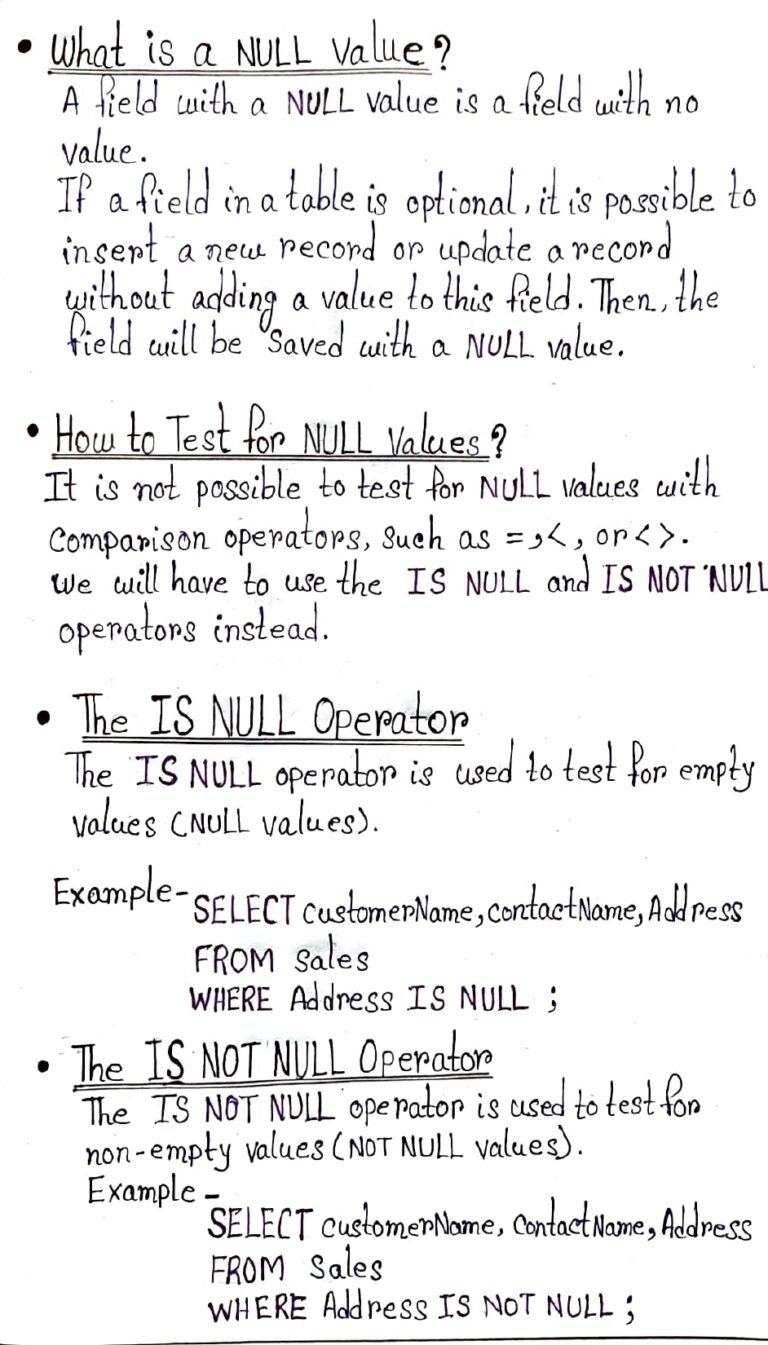 • What is a NULL Value?
A field with a NULL value is a field with no
value.
If a field in a table is optional, it is possible to
insert a new record or update a record
without adding a value to this field. Then, the
field will be Saved with a NULL value.
• How to Test for NULL Values?
It is not possible to test for NULL values with
Comparison operators, Such as =, <, or <>.
We will have to use the IS NULL and IS NOT NULL
operators instead.
• The IS NULL Operator
The IS NULL operator is used to test for empty
values (NULL values).
Example- SELECT CustomerName, ContactName, Address
FROM Sales
WHERE Address IS NULL ;
• The IS NOT NULL Operator
The IS NOT NULL operator is used to test for
non-empty values (NOT NULL values).
Example -
SELECT CustomerName, ContactName, Address
FROM Sales
WHERE Address IS NOT NULL ;